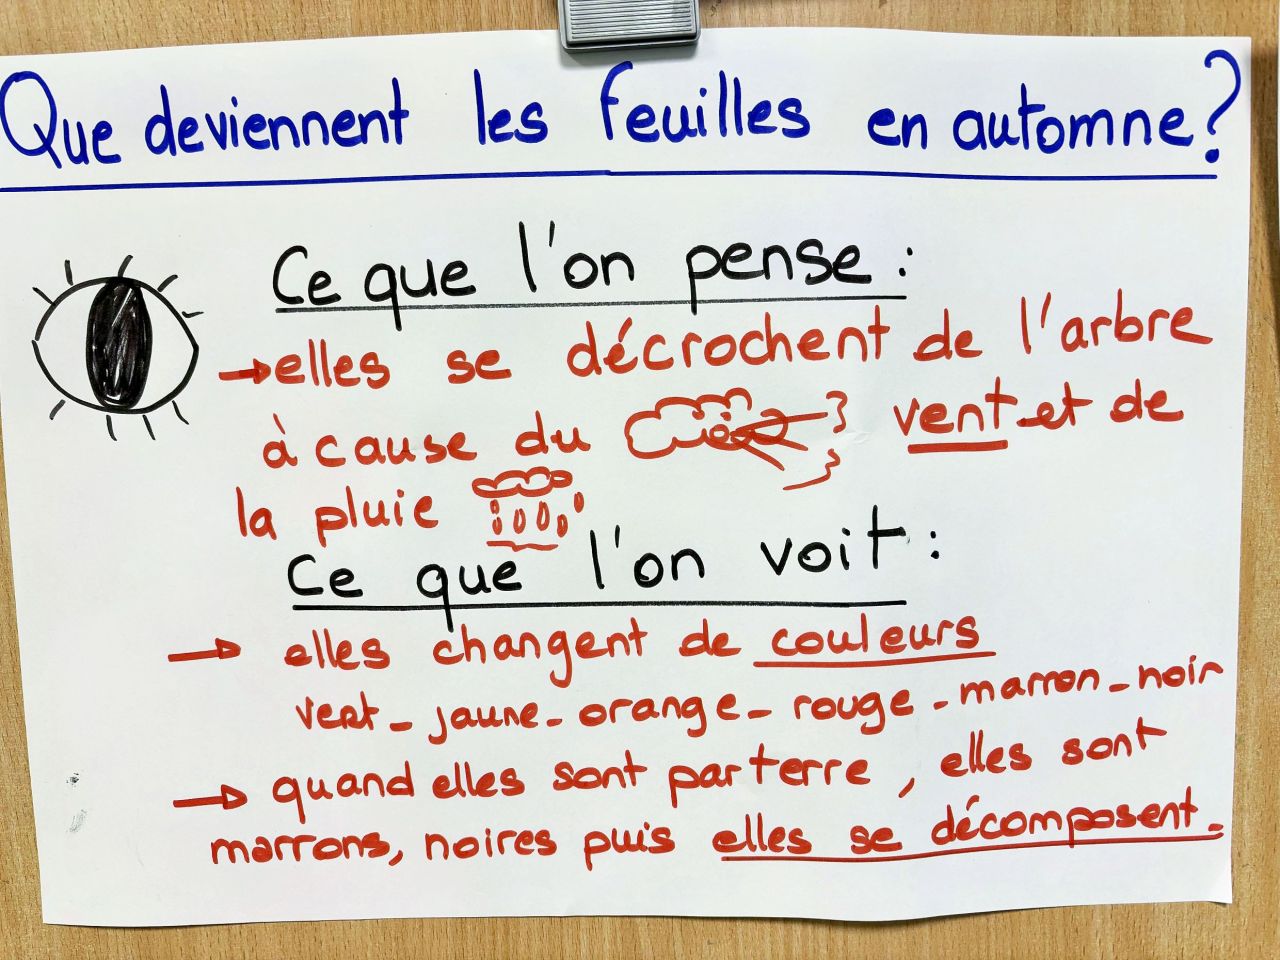 Que deviennent les feuilles en automne?
Ce que l'on pense :
→ elles se décrochent de l'arbre
à cause du vent et de
la pluie
Ce que l'on voit :
→ elles changent de couleurs
vert - jaune - orange - rouge - marron - noir
→ quand elles sont par terre, elles sont
marrons, noires puis elles se décomposent.